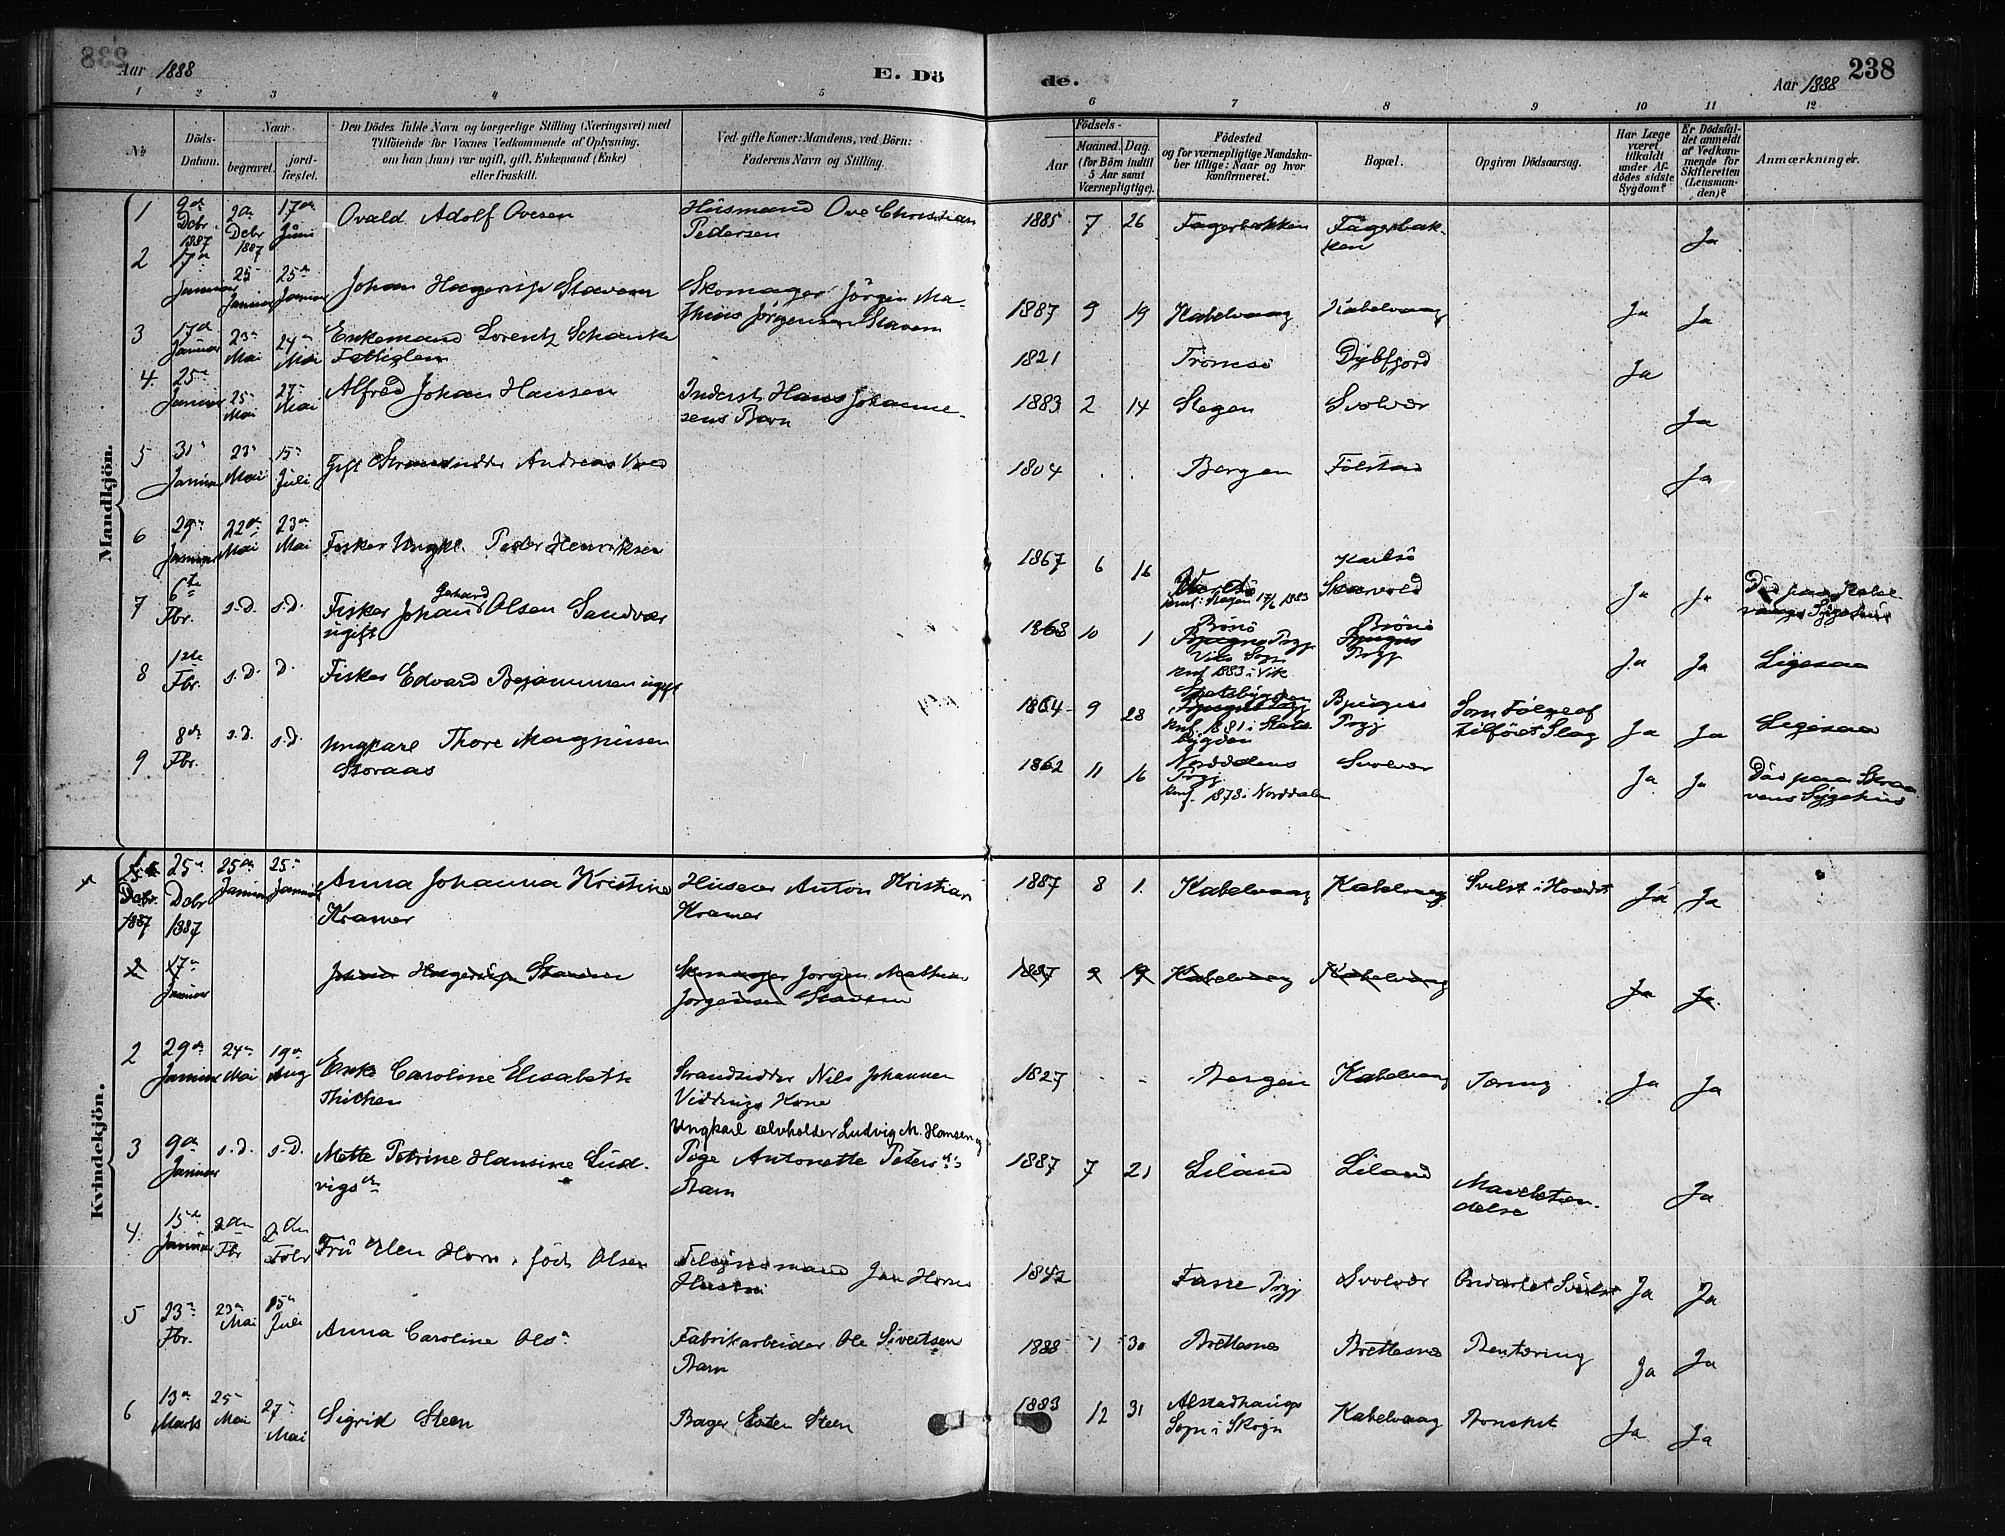 238
Aar 1888
E. Dö
de.
Aar 1888
238
1 2 3 4 5 6 7 8 9 10 11 12
№
Döds-Datum.
Naar
begravet.
jord-fæstet.
Den Dödes fulde Navn og borgerlige Stilling (Næringsvei) med
Tilföiende for Voxnes Vedkommende af Oplysning,
om han (hun) var ugift, gift, Enkemand (Enke)
eller fraskilt.
Ved gifte Koner: Mandens, ved Börn:
Faderens Navn og Stilling.
Födsels-
Aar
Maaned. Dag.
(for Börn indtil
5 Aar samt
Værnepligtige).
Födested
og for værnepligtige Mandska-
ber tillige: Naar og hvor
konfirmeret.
Bopæl.
Opgiven Dödsaarsag.
Har Læge
været
tilkaldt
under Af-
dödes sidste
Sygdom?
Er Dödsfal-
det anmeldt
af Vedkom-
mende for
Skifteretten
(Lensman-
den)?
Anmærkninger.
Mandkjön.
1 9de Dcbr 1887 Dcbr 1887 17de Juni Ovald Adolf Ovesen Husmand Ove Christian
Pedersen 1885 7 26 Fagerbakken Fagerbak-
ken Ja
2 Januar 25 Januar 25 Januar Johan Stavem Skomager Jörgen Ma-
thius Jörgensen Stavem 1887 9 19 Kabelvaag Kabelvaag Ja Ja
3 17de Januar 23de Mai 24de Mai Enkemand Lorentz Schanke
Fattiglem 1821 Tromsö Dybfjord Ja
4. 25de Januar 25 Mai 27 Mai Alfred Johan Hansen Inderst Hans Johanne-
sens Barn 1883 2 14 Stegen Svolvær Ja
5 31 Januar 23 Mai 15 Juli Gift Strandsidder Andreas 1804 Bergen Ja
6 29 Januar 22de Mai 23de Mai Fisker Ungkl. Peder Henriksen 1867 6 16 Karlsö
konf: Stegen 17/6 1883 Ja Ja Död paa Kabel
vaags Sygehus
7 6te Fbr. s.D. s.D. Fisker Johan Gerhard Olsen Sandvær
ugift 1868 10 1 Brönö
Vik Sogn
konf 1883 i Vik Brönö
Prgj Ja Ja Ligesaa
8 Fbr. s.D. D. Fisker Edvard Benjaminsen ugift 1864 9 28
konf. 1881 i Stads
bygden Prgj Som Fölge af
tilföiet Slag Ja Ja Ligesaa
9 8de Fbr. s.D. s.D. Ungkarl Thore Magnussen
Storaas 1862 11 16 Norddalens
Prgj
konf. 1878 i Norddalen Svolvær Ja Ja Död paa
Sygehus
Kvindekjön.
1 Dcbr. 1887 25de Dcbr 1887 25de Januar 25 Januar Anna Johanna Kristine
Kramer Anton Kristian
Kramer 1887 8 1. Kabelvaag Kabelvaag Svulst i Hovedet Ja Ja
2 17de Januar Johan Stavem Skomager Jörgen Mathius
Jörgensen Stavem 1887 9 19 Kabelvaag Kabelvaag Ja Ja
2 29de Januar 24de Mai 19de Aug Enke Caroline Elisabeth
Strandsidder Nils Johannes
Kone 1827 - - Bergen Kabelvaag Tæring Ja Ja
3 9de Januar s.D. s.D. Mette Petrine Hansine Lud-
vigsdr Ungkarl Selvholder Ludvig M. Hansen og
Pige Antonette Petersdrs
Barn 1887 7 21 Liland Liland Mavebetæn-
delse Ja
4. 15de Januar 2den Fbr 2den Febr Fru Elen Horn, född Olsen 1842 Prgj Svolvær Ondartet Svulst Ja Ja
5 23de Fbr. 23de Mai 15de Juli Anna Caroline Olsdr Fabrikarbeider Ole Sivertsen
Barn 1888 1 30 Brettesnes Brettesnes Bentæring Ja Ja
6 13de Marts 25 Mai 27 Mai Sigrid Steen Bager Steen 1883 12 31 Alstadhaugs
Sogn i Skogn Kabelvaag Bronkit Ja Ja